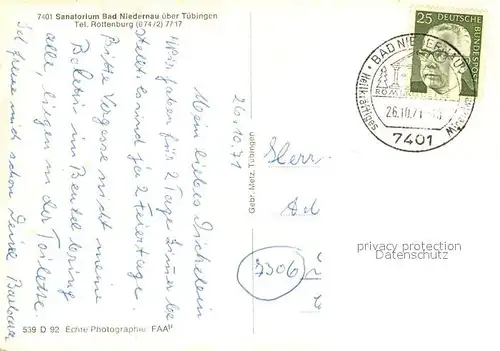 7401 Sanatorium Bad Niedernau über Tübingen
Tel. Rottenburg (07472) 7717
26.10.71
Mein liebes
Wir haben für 2 Tage Zimmer be
stellt. Es sind ja 2 Feiertage.
Bitte Vergesse nicht meine
im Beutel bring
alle, liegen in der Toilette.
Ich freue mich schon Deine Barbara
539 D 92 Echte Photographie FAA
Gebr. Metz, Tübingen
25 DEUTSCHE BUNDESPOST
BAD NIEDERNAU
26.10.71
7401
Herr
7306
privacy protection
Datenschutz